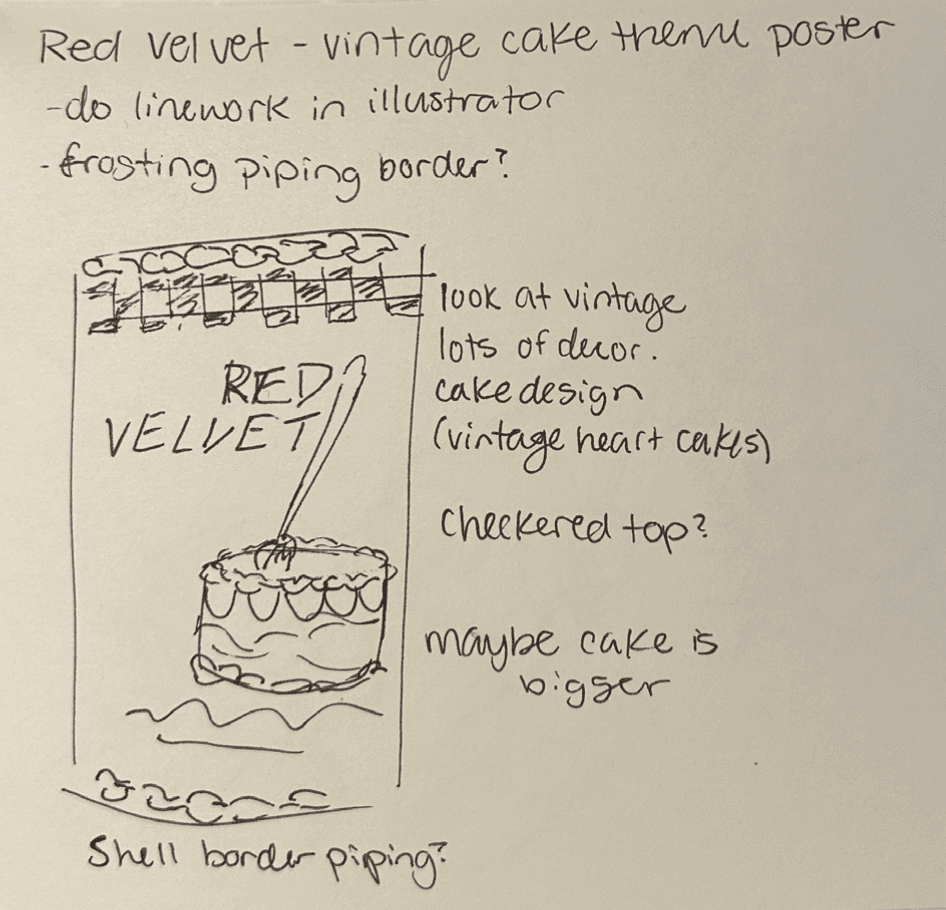 Red velvet - vintage cake theme poster
- do linework in illustrator
- frosting piping border?
look at vintage
lots of decor.
cake design
(vintage heart cakes)
RED
VELVET
checkered top?
maybe cake is
bigger
Shell border piping?